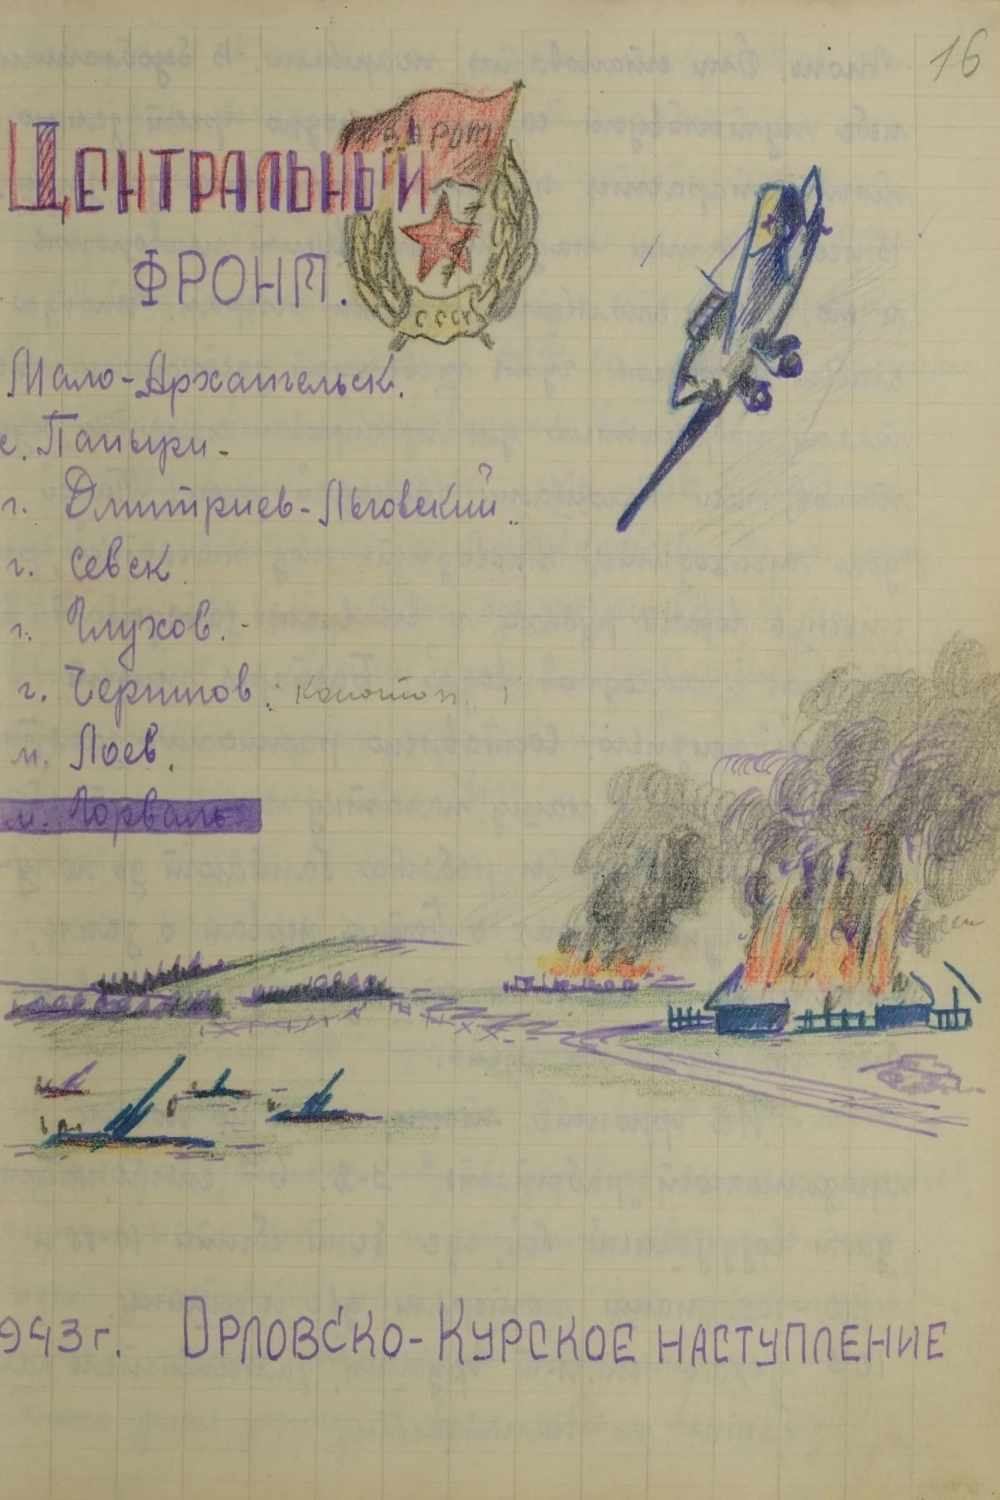 16
ЦЕНТРАЛЬНЫЙ
ФРОНТ.
СССР
Мало-Архангельск.
с. Паныри.
г. Дмитриев-Льговский.
г. Севск.
г. Глухов.
г. Чернигов. Конотоп
м. Лоев.
м. Горваль.
943 г. ОРЛОВСКО-КУРСКОЕ НАСТУПЛЕНИЕ